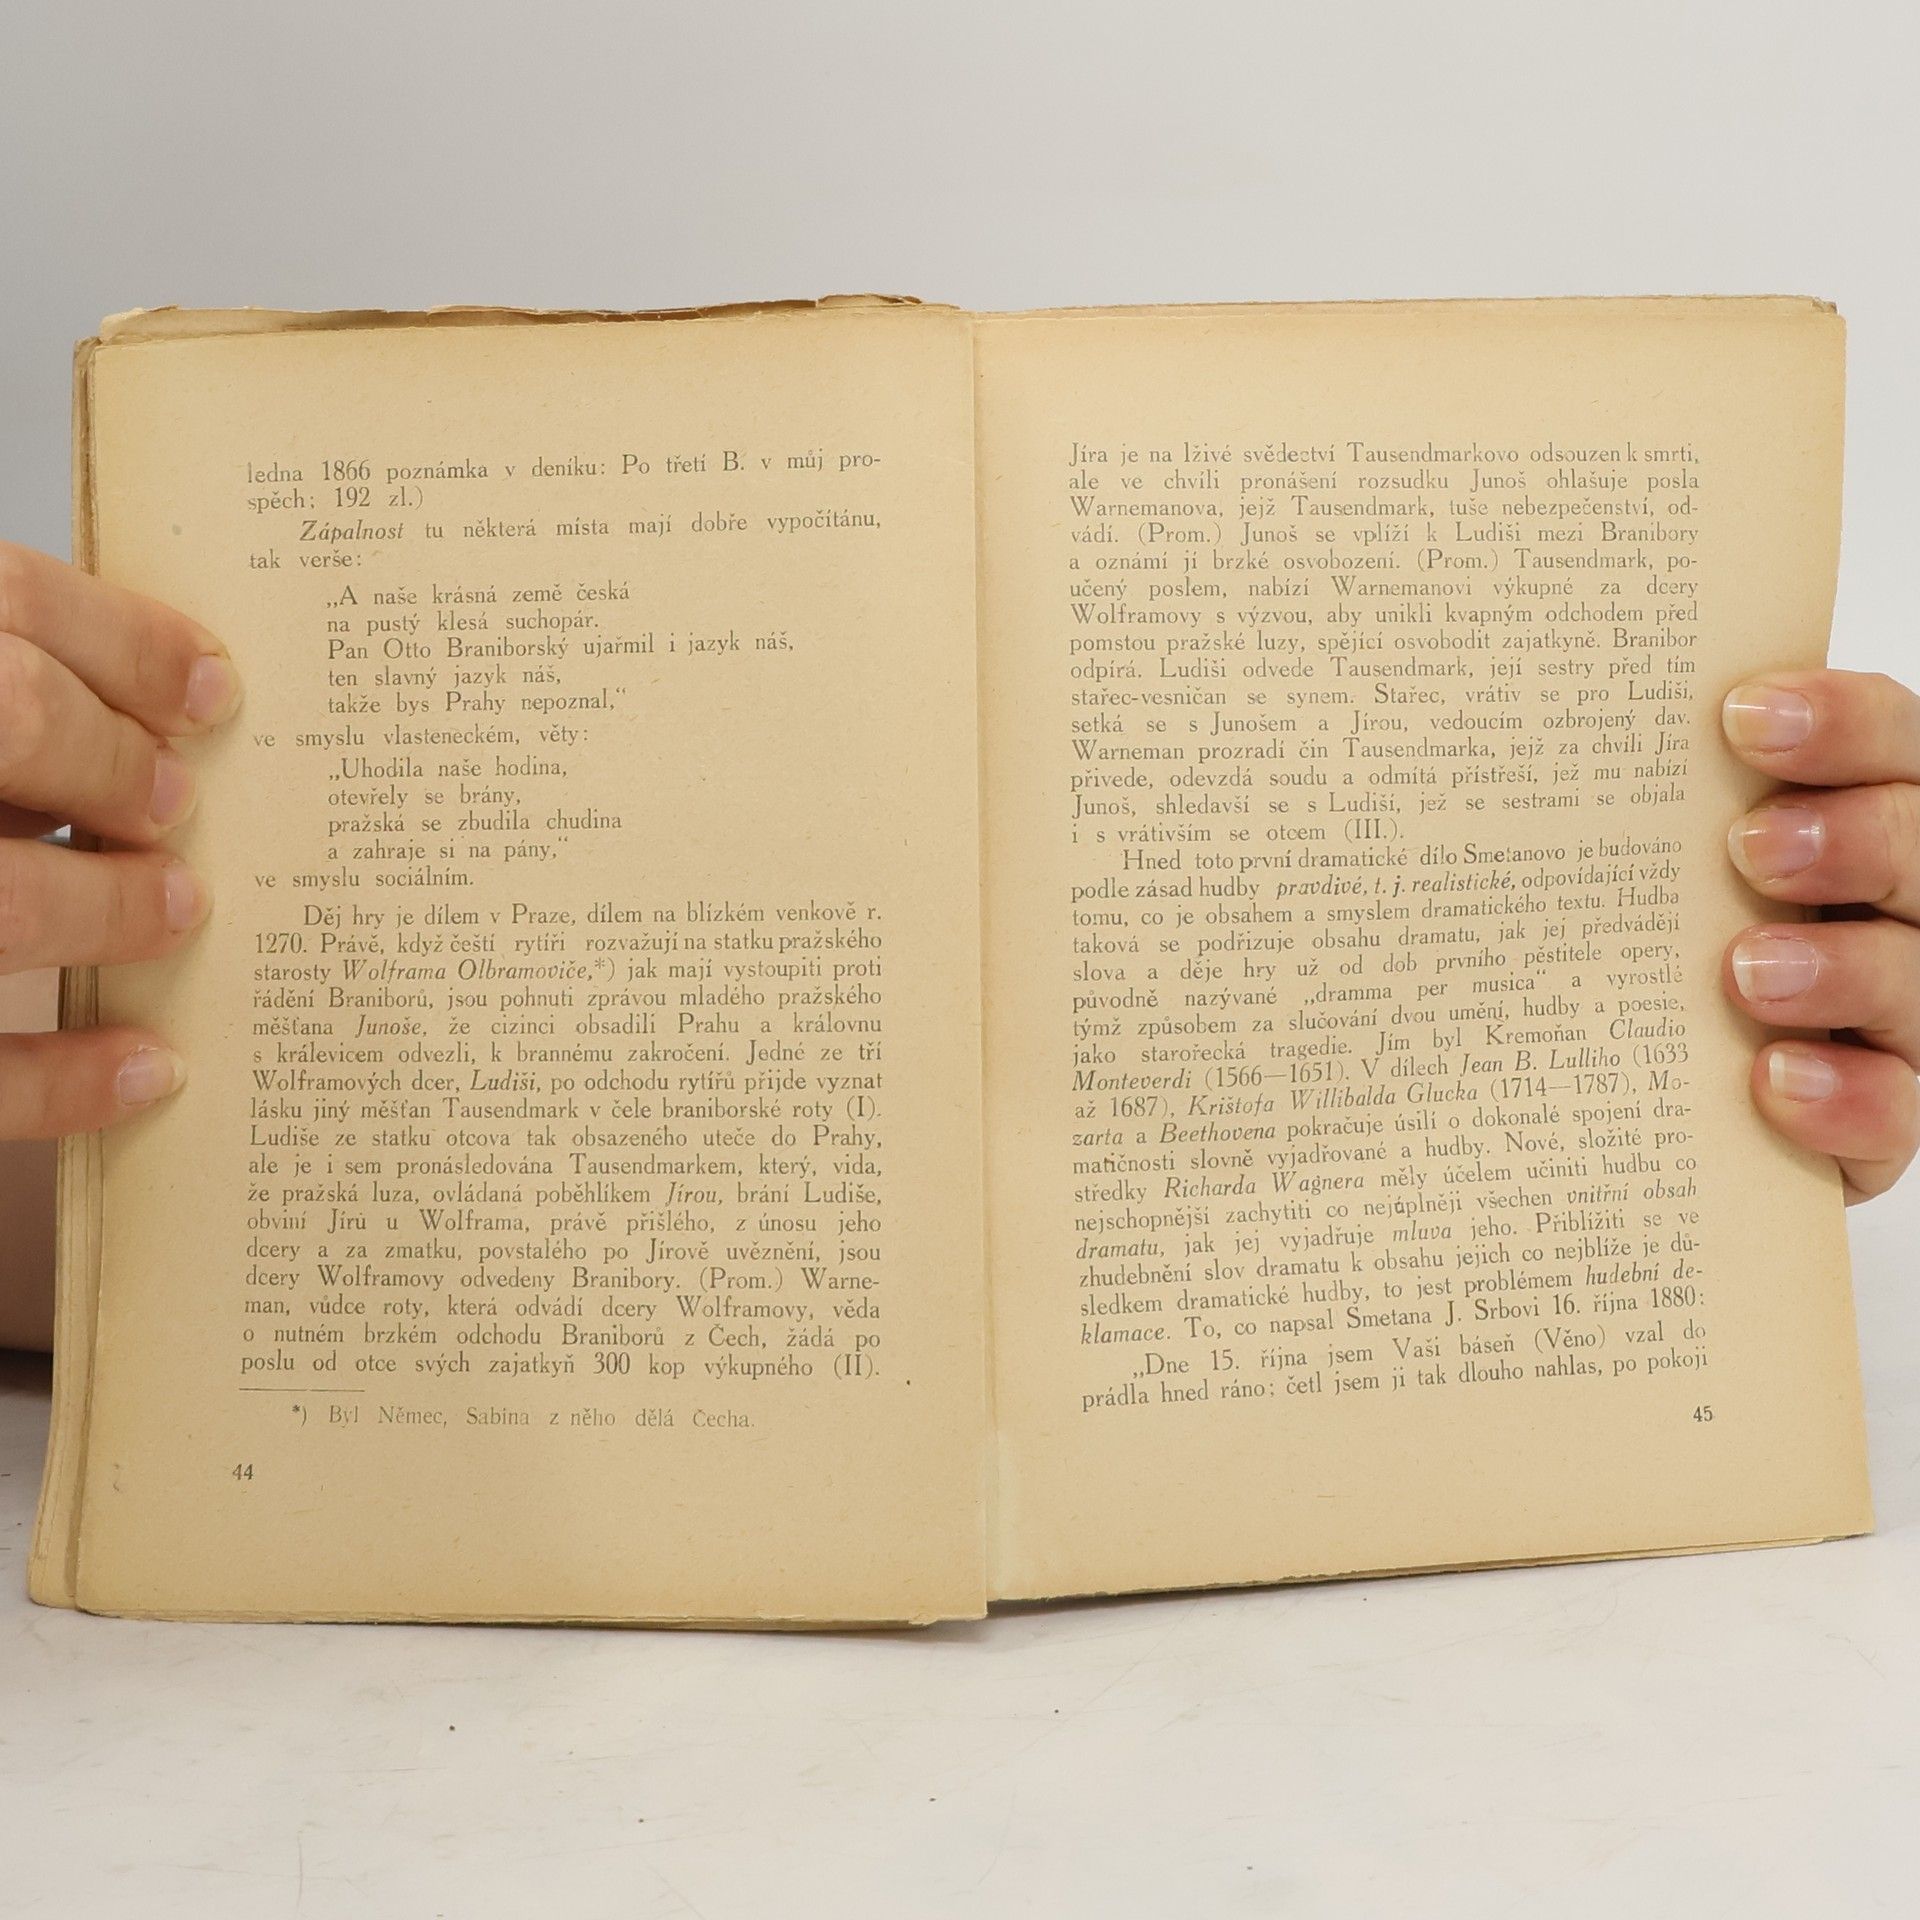 ledna 1866 poznámka v deníku: Po třetí B. v můj pro-
spěch; 192 zl.)
Zápalnost tu některá místa mají dobře vypočítánu,
tak verše:
„A naše krásná země česká
na pustý klesá suchopár.
Pan Otto Braniborský ujařmil i jazyk náš,
ten slavný jazyk náš,
takže bys Prahy nepoznal,“
ve smyslu vlasteneckém, věty:
„Uhodila naše hodina,
otevřely se brány,
pražská se zbudila chudina
a zahraje si na pány,“
ve smyslu sociálním.
Děj hry je dílem v Praze, dílem na blízkém venkově r.
1270. Právě, když čeští rytíři rozvažují na statku pražského
starosty Wolframa Olbramoviče,*) jak mají vystoupiti proti
řádění Braniborů, jsou pohnuti zprávou mladého pražského
měšťana Junoše, že cizinci obsadili Prahu a královnu
s králevicem odvezli, k brannému zakročení. Jedné ze tří
Wolframových dcer, Ludiši, po odchodu rytířů přijde vyznat
lásku jiný měšťan Tausendmark v čele braniborské roty (I).
Ludiše ze statku otcova tak obsazeného uteče do Prahy,
ale je i sem pronásledována Tausendmarkem, který, vida,
že pražská luza, ovládaná poběhlíkem Jírou, brání Ludiše,
obviní Jíru u Wolframa, právě přišlého, z únosu jeho
dcery a za zmatku, povstalého po Jírově uvěznění, jsou
dcery Wolframovy odvedeny Branibory. (Prom.) Warne-
man, vůdce roty, která odvádí dcery Wolframovy, věda
o nutném brzkém odchodu Braniborů z Čech, žádá po
poslu od otce svých zajatkyň 300 kop výkupného (II).
*) Byl Němec, Sabina z něho dělá Čecha.
44
Jíra je na lživé svědectví Tausendmarkovo odsouzen k smrti,
ale ve chvíli pronášení rozsudku Junoš ohlašuje posla
Warnemanova, jejž Tausendmark, tuše nebezpečenství, od-
vádí. (Prom.) Junoš se vplíží k Ludiši mezi Branibory
a oznámí jí brzké osvobození. (Prom.) Tausendmark, po-
učený poslem, nabízí Warnemanovi výkupné za dcery
Wolframovy s výzvou, aby unikli kvapným odchodem před
pomstou pražské luzy, spějící osvobodit zajatkyně. Branibor
odpírá. Ludiši odvede Tausendmark, její sestry před tím
stařec-vesničan se synem. Stařec, vrátiv se pro Ludiši,
setká se s Junošem a Jírou, vedoucím ozbrojený dav.
Warneman prozradí čin Tausendmarka, jejž za chvíli Jíra
přivede, odevzdá soudu a odmítá přístřeší, jež mu nabízí
Junoš, shledavší se s Ludiší, jež se sestrami se objala
i s vrátivším se otcem (III.).
Hned toto první dramatické dílo Smetanovo je budováno
podle zásad hudby pravdivé, t. j. realistické, odpovídající vždy
tomu, co je obsahem a smyslem dramatického textu. Hudba
taková se podřizuje obsahu dramatu, jak jej předvádějí
slova a děje hry už od dob prvního pěstitele opery,
původně nazývané „dramma per musica“ a vyrostlé
týmž způsobem za slučování dvou umění, hudby a poesie,
jako starořecká tragedie. Jím byl Kremoňan Claudio
Monteverdi (1566—1651). V dílech Jean B. Lulliho (1633
až 1687), Krištofa Willibalda Glucka (1714—1787), Mo-
zarta a Beethovena pokračuje úsilí o dokonalé spojení dra-
matičnosti slovně vyjadřované a hudby. Nové, složité pro-
středky Richarda Wagnera měly účelem učiniti hudbu co
nejschopnější zachytiti co nejúplněji všechen vnitřní obsah
dramatu, jak jej vyjadřuje mluva jeho. Přiblížiti se ve
zhudebnění slov dramatu k obsahu jejich co nejblíže je dů-
sledkem dramatické hudby, to jest problémem hudební de-
klamace. To, co napsal Smetana J. Srbovi 16. října 1880:
„Dne 15. října jsem Vaši báseň (Věno) vzal do
prádla hned ráno; četl jsem ji tak dlouho nahlas, po pokoji
45